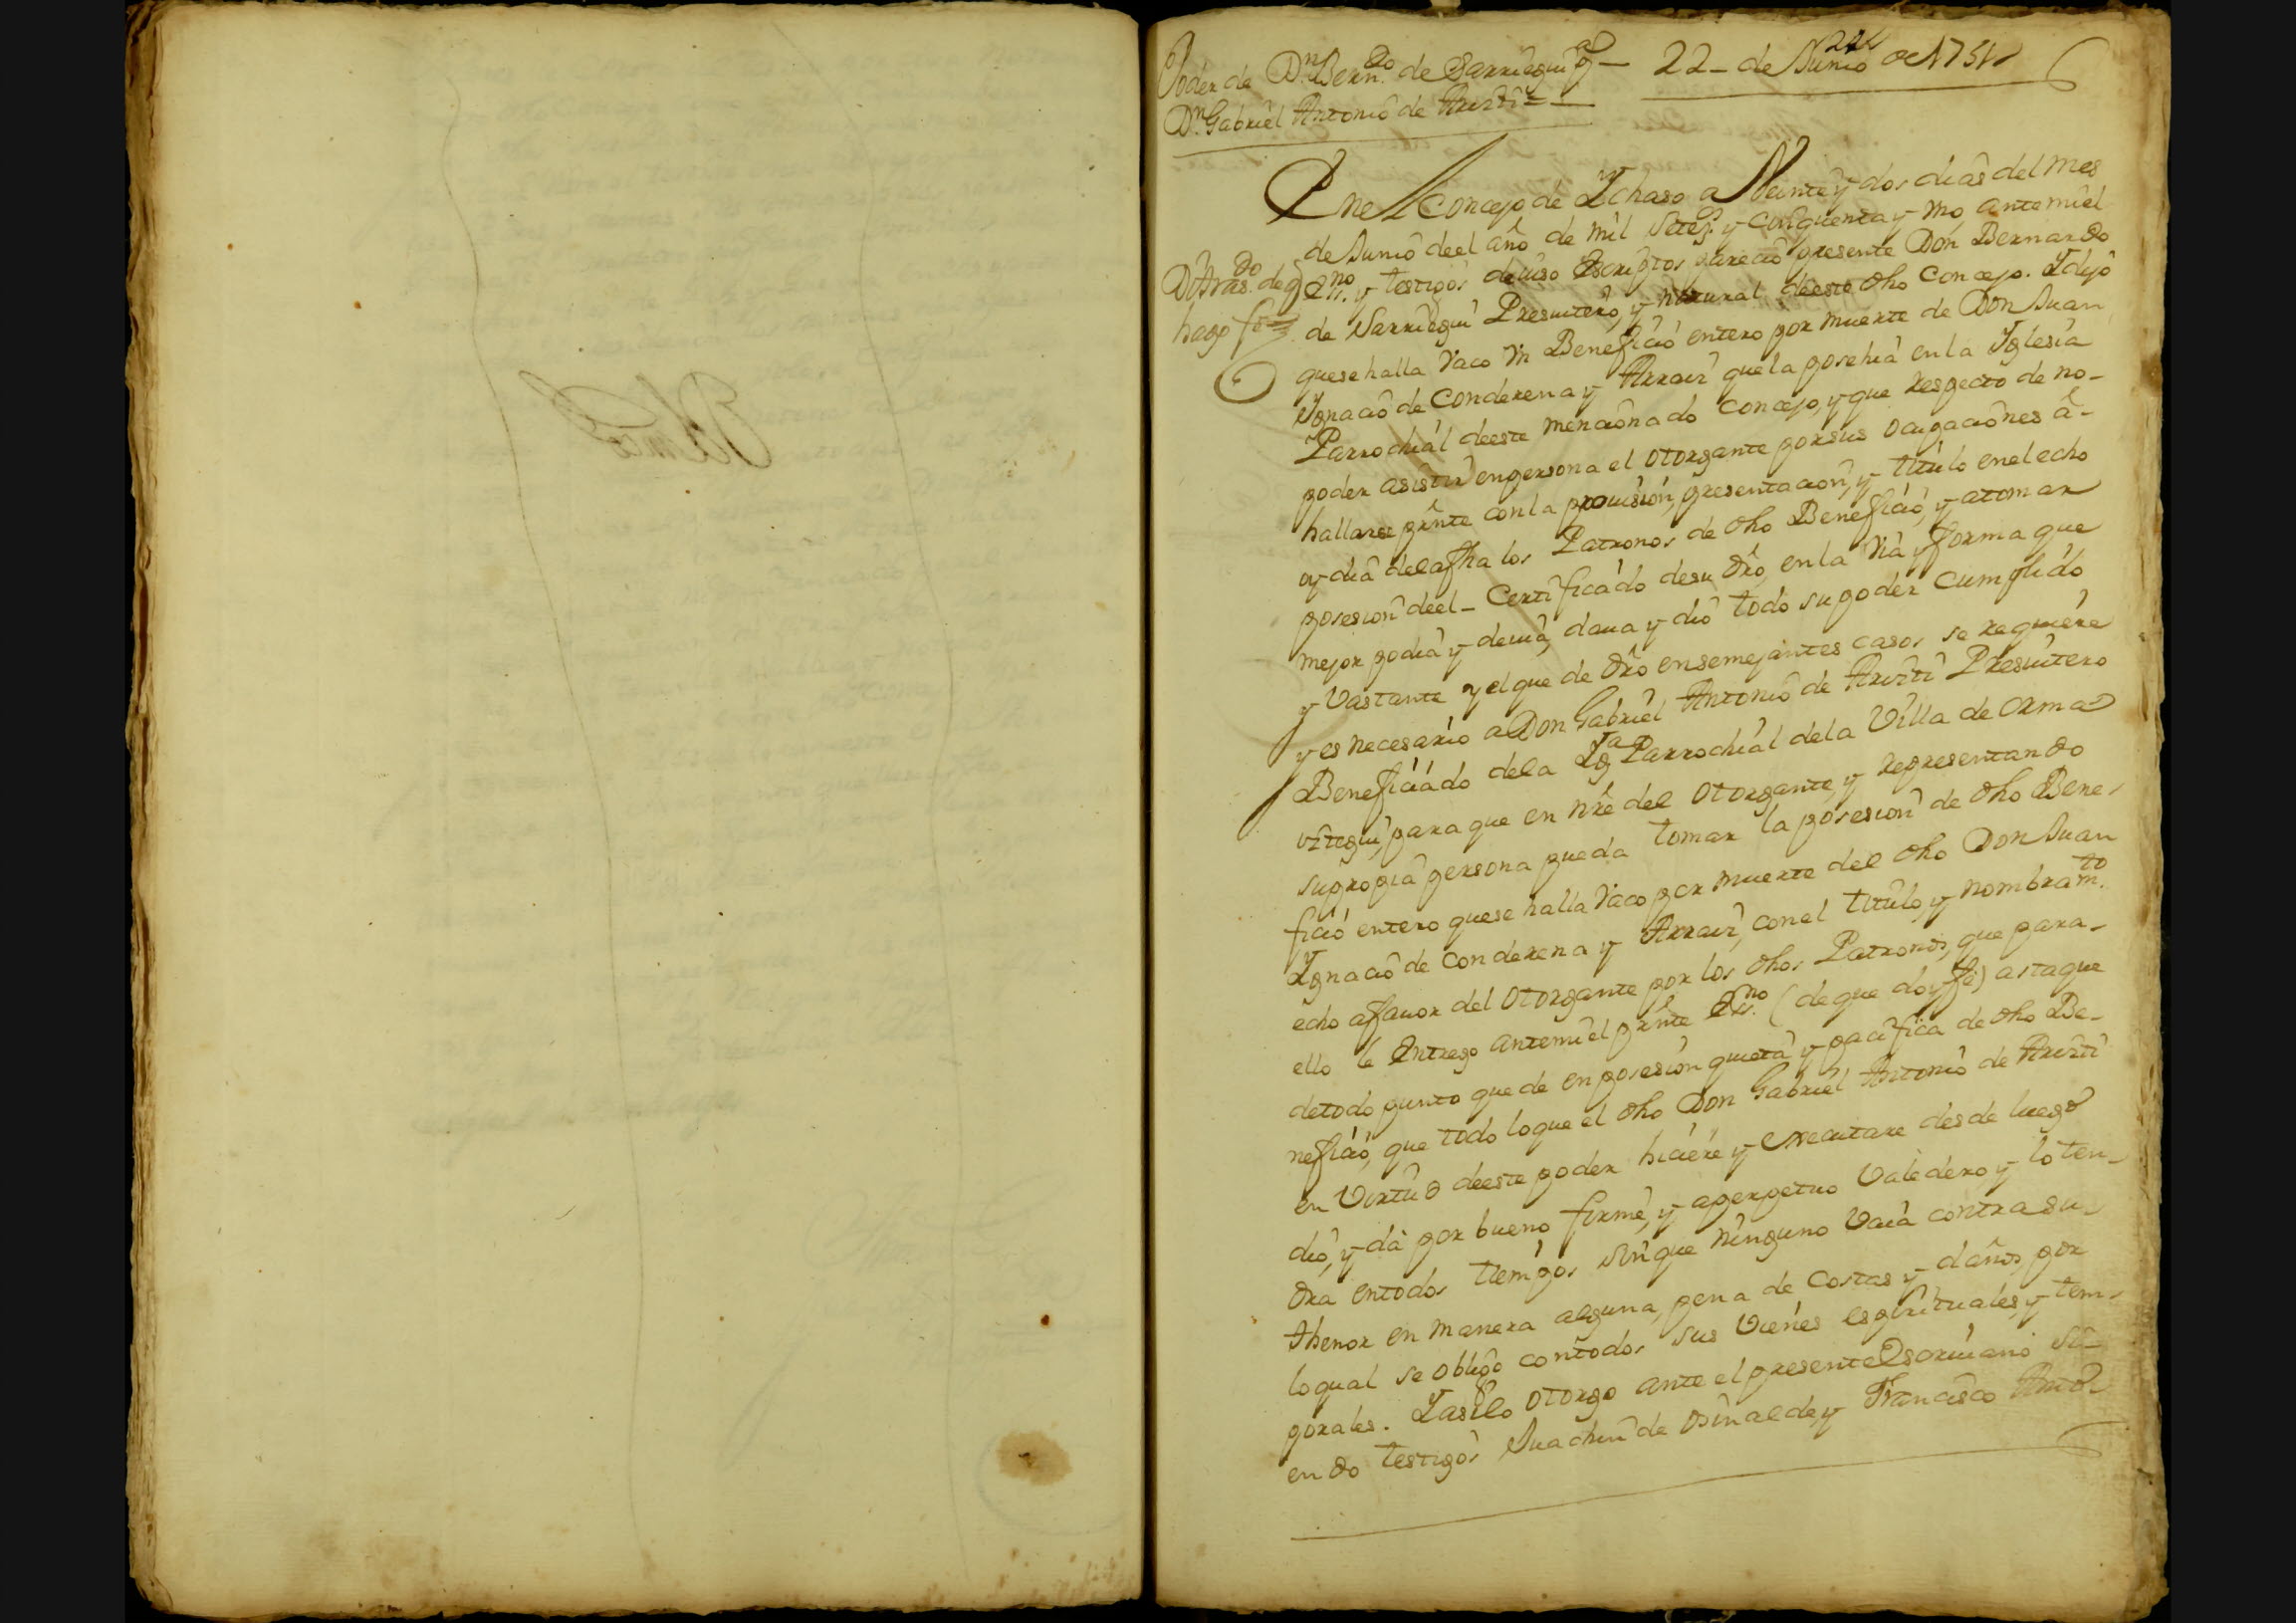 Poder de Dn. Bern.do de Sarriegui p.a — 22 - de Junio de 1751
Dn. Gabriel Antonio de Aristi =
En el Concejo de Ychaso a Veinte y dos dias del mes
de Junio de el año de mil Setez.s y Cinquenta y uno, ante mi el
Di tras.do de q
hago fee
Es.no y testigos de iuso Escriptos parecio presente Don Bernardo
de Sarriegui Presuitero, y natural de este dho Concejo. Y dijo
que se halla Vaco Vn Beneficio entero por muerte de Don Juan
Ygnacio de Conderena y Arraiz que la posehia en la Yglesia
Parrochial de este mencionado Concejo, y que respecto de no-
poder asistir en persona el otorgante por sus ocupaciones â-
hallarse prnte con la prouision, presentacion, y titulo en el echo
oy dia de la fha los Patronos de dho Beneficio, y a tomar
posesion de el - Certificado de su dro, en la Via y forma que
mejor podia y deuia, daua y dio todo su poder Cumplido
y Vastante y el que de dro en semejantes casos se requiere
y es necesario a Don Gabriel Antonio de Aristi Presuitero
Beneficiado de la Yg.a Parrochial de la Villa de Orma
iztegui, para que en nre del Otorgante, y representando
su propia persona pueda tomar la posesion de dho Bene-
ficio entero que se halla Vaco por muerte del dho Don Juan
Ygnacio de Conderena y Arraiz, con el titulo y nombram.to
echo a fauor del Otorgante por los dhos Patronos, que para-
ello le Entrego ante mi el prnte Es.no (de que doy fê) asta que
de todo punto quede en posesion quieta y pacifica de dho Be-
neficio, que todo lo que el dho Don Gabriel Antonio de Aristi
en Virtud de este poder hiciere y executare desde luego
dio, y dà por bueno firme, y a perpetuo Valedero y lo ten-
dra en todos tiempos sin que ninguno Vaia contra su
thenor en manera alguna, pena de Costas y daños, por
lo qual se obligo con todos sus Vienes espirituales, y tem-
porales. Y asi lo otorgo ante el presente Escriuano si-
endo testigos Juachin de Osinalde, y Francisco